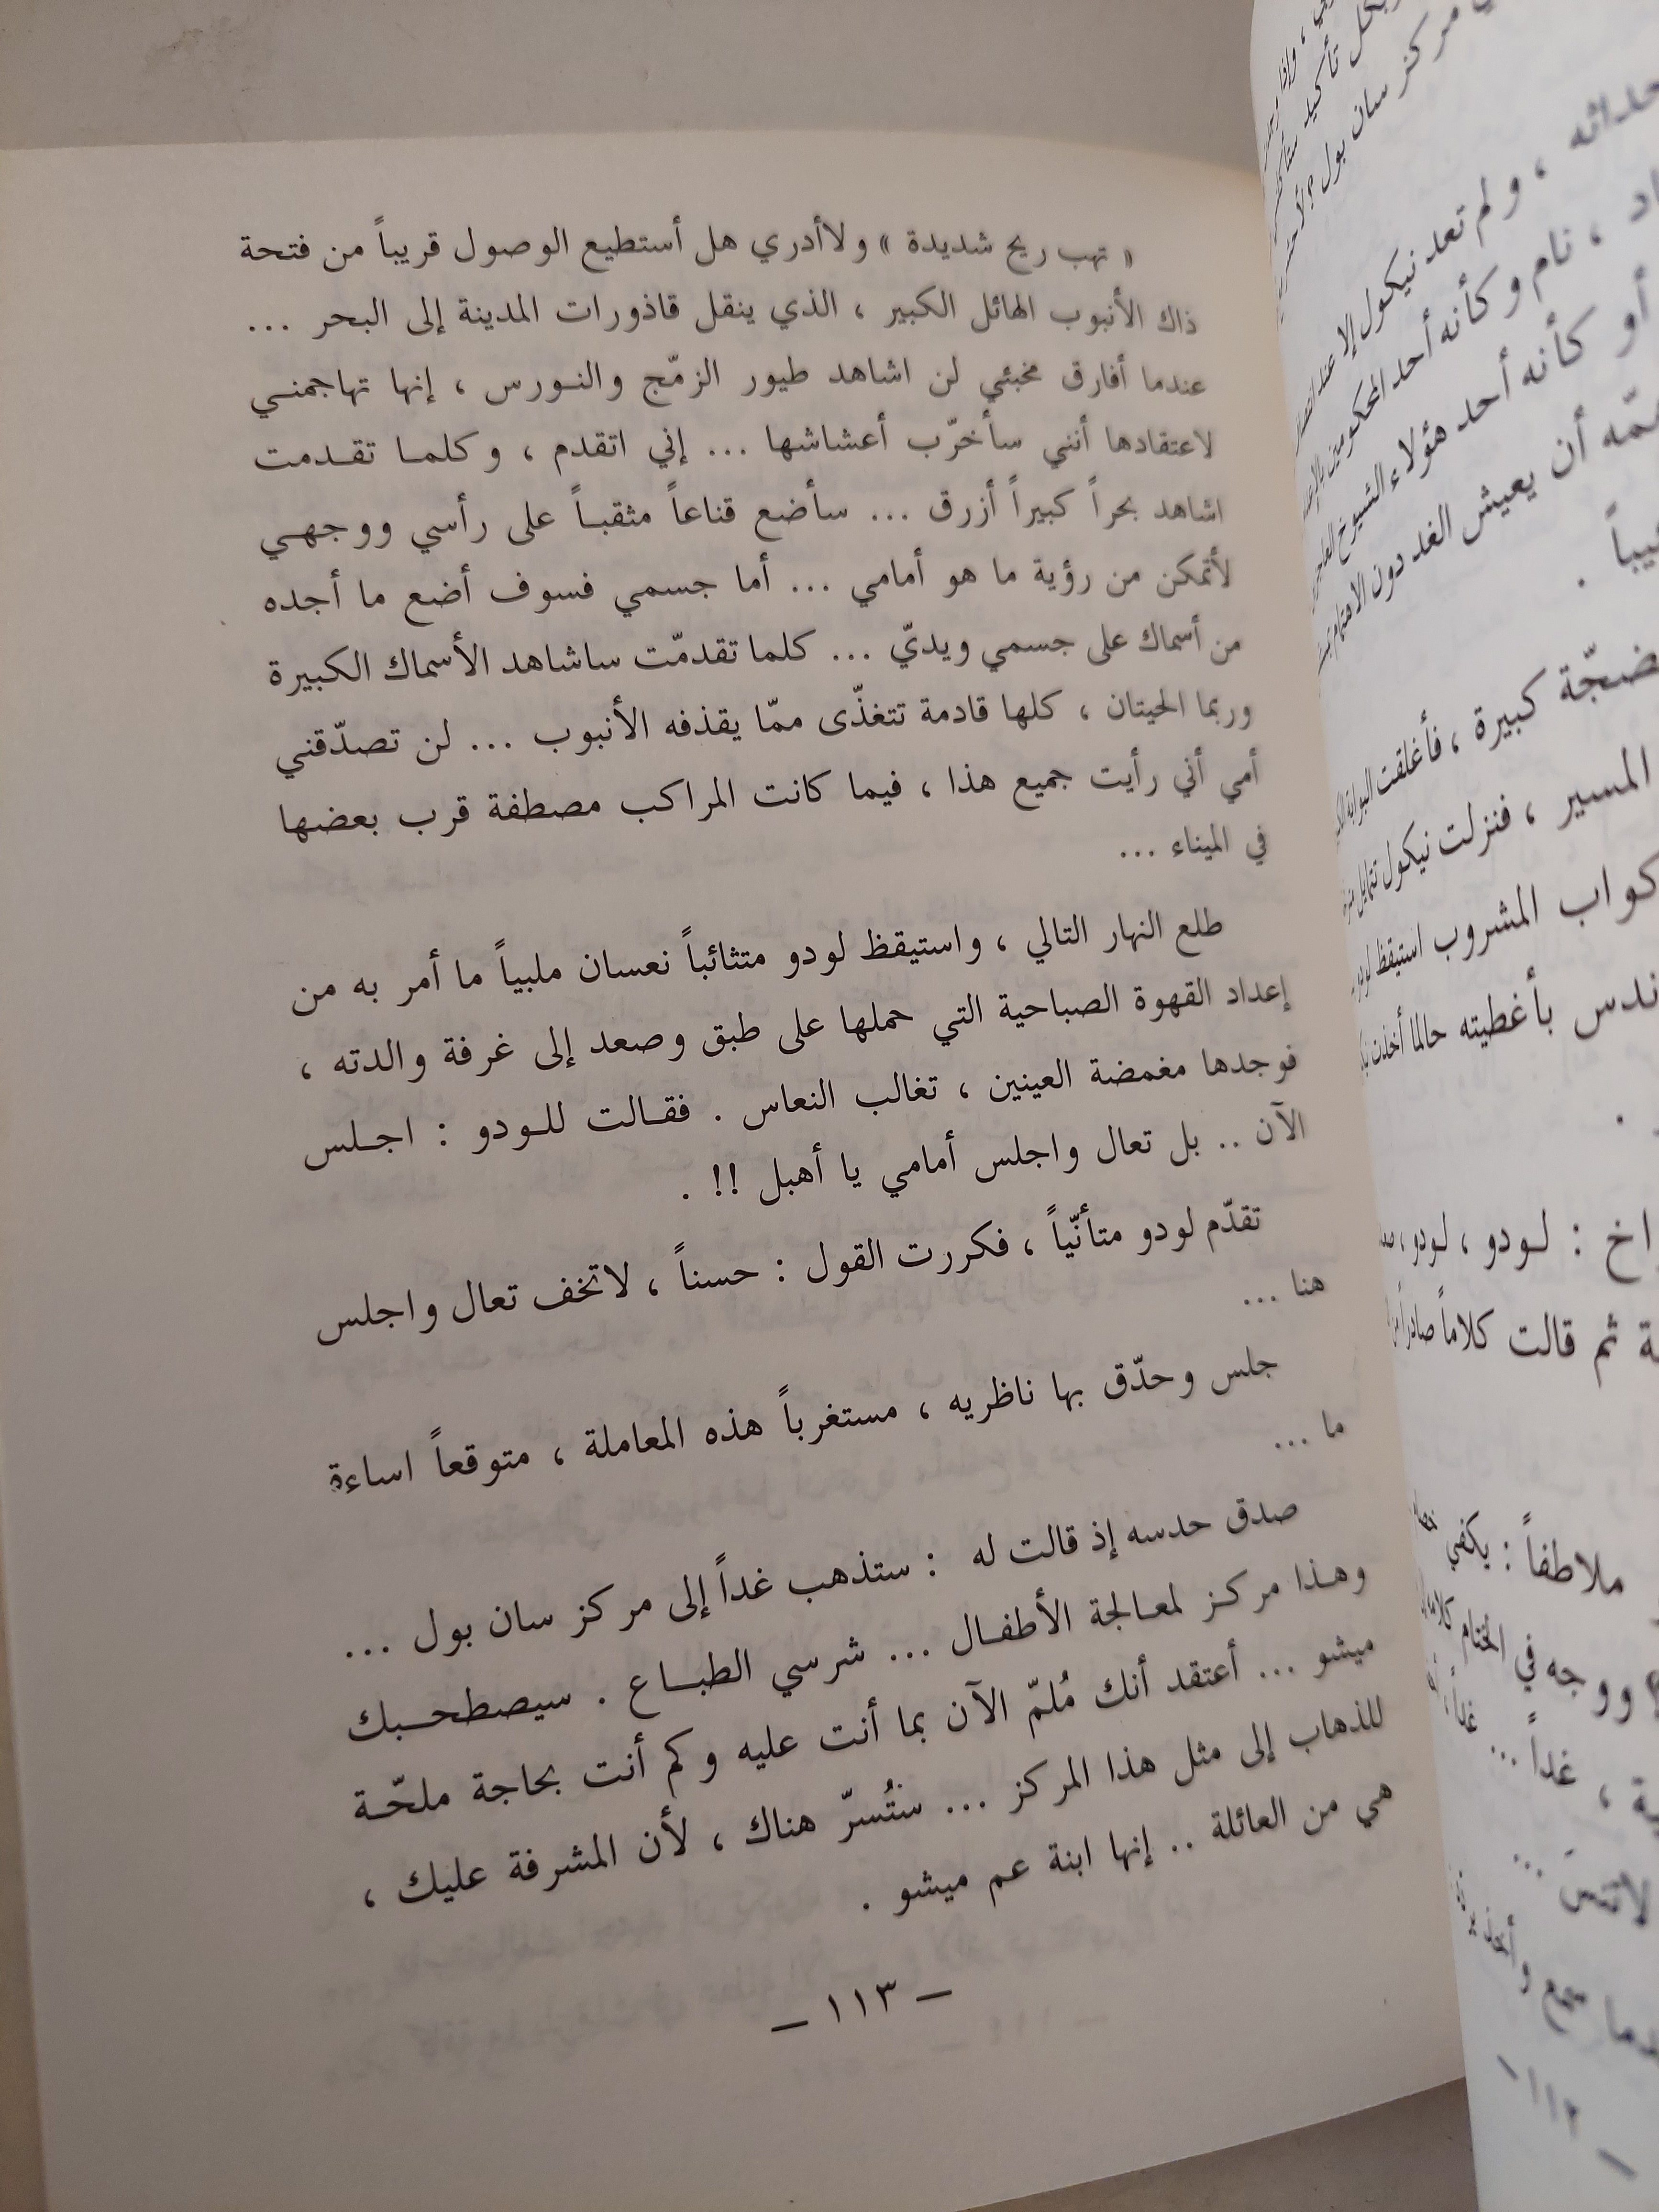 « تهب ريح شديدة » ولاأدري هل أستطيع الوصول قريباً من فتحة
ذاك الأنبوب الهائل الكبير ، الذي ينقل قاذورات المدينة إلى البحر ...
عندما أفارق مخبئي لن اشاهد طيور الزمّج والنورس ، إنها تهاجمني
لاعتقادها أنني سأخرّب أعشاشها ... إني اتقدم ، وكلما تقدمت
اشاهد بحراً كبيراً أزرق ... سأضع قناعاً مثقباً على رأسي ووجهي
لأتمكن من رؤية ما هو أمامي ... أما جسمي فسوف أضع ما أجده
من أسماك على جسمي ويديّ ... كلما تقدمّت ساشاهد الأسماك الكبيرة
وربما الحيتان ، كلها قادمة تتغذّى ممّا يقذفه الأنبوب ... لن تصدّقني
أمي أني رأيت جميع هذا ، فيما كانت المراكب مصطفة قرب بعضها
في الميناء ...
طلع النهار التالي ، واستيقظ لودو متثائباً نعسان ملبياً ما أمر به من
إعداد القهوة الصباحية التي حملها على طبق وصعد إلى غرفة والدته ،
فوجدها مغمضة العينين ، تغالب النعاس . فقالت للودو : اجلس
الآن .. بل تعال واجلس أمامي يا أهبل !! .
تقدّم لودو متأنّياً ، فكررت القول : حسناً ، لاتخف تعال واجلس
هنا ...
جلس وحدّق بها ناظريه ، مستغرباً هذه المعاملة ، متوقعاً اساءة
ما ...
صدق حدسه إذ قالت له : ستذهب غداً إلى مركز سان بول ...
وهذا مركز لمعالجة الأطفال ... شرسي الطباع . سيصطحبك
ميشو ... أعتقد أنك مُلمّ الآن بما أنت عليه وكم أنت بحاجة ملحّة
للذهاب إلى مثل هذا المركز ... ستُسرّ هناك ، لأن المشرفة عليك ،
هي من العائلة .. إنها ابنة عم ميشو .
– ١١٣ –
مركز سان بول
، ولم تعد نيكول إلا عند
، نام وكأنه أحد المحكومين
أو كأنه أحد هؤلاء الشيوخ
أن يعيش الغد دون
كبيرة ، فأغلقت البوابة
المسير ، فنزلت نيكول
المشروب استيقظ
بأغطيته حالما أخذت
: لودو ، لودو ،
ثم قالت كلاماً صادراً
ملاطفاً : يكفي
ووجه في الختام
، غداً ...
لاتنس ...
١١٢ –